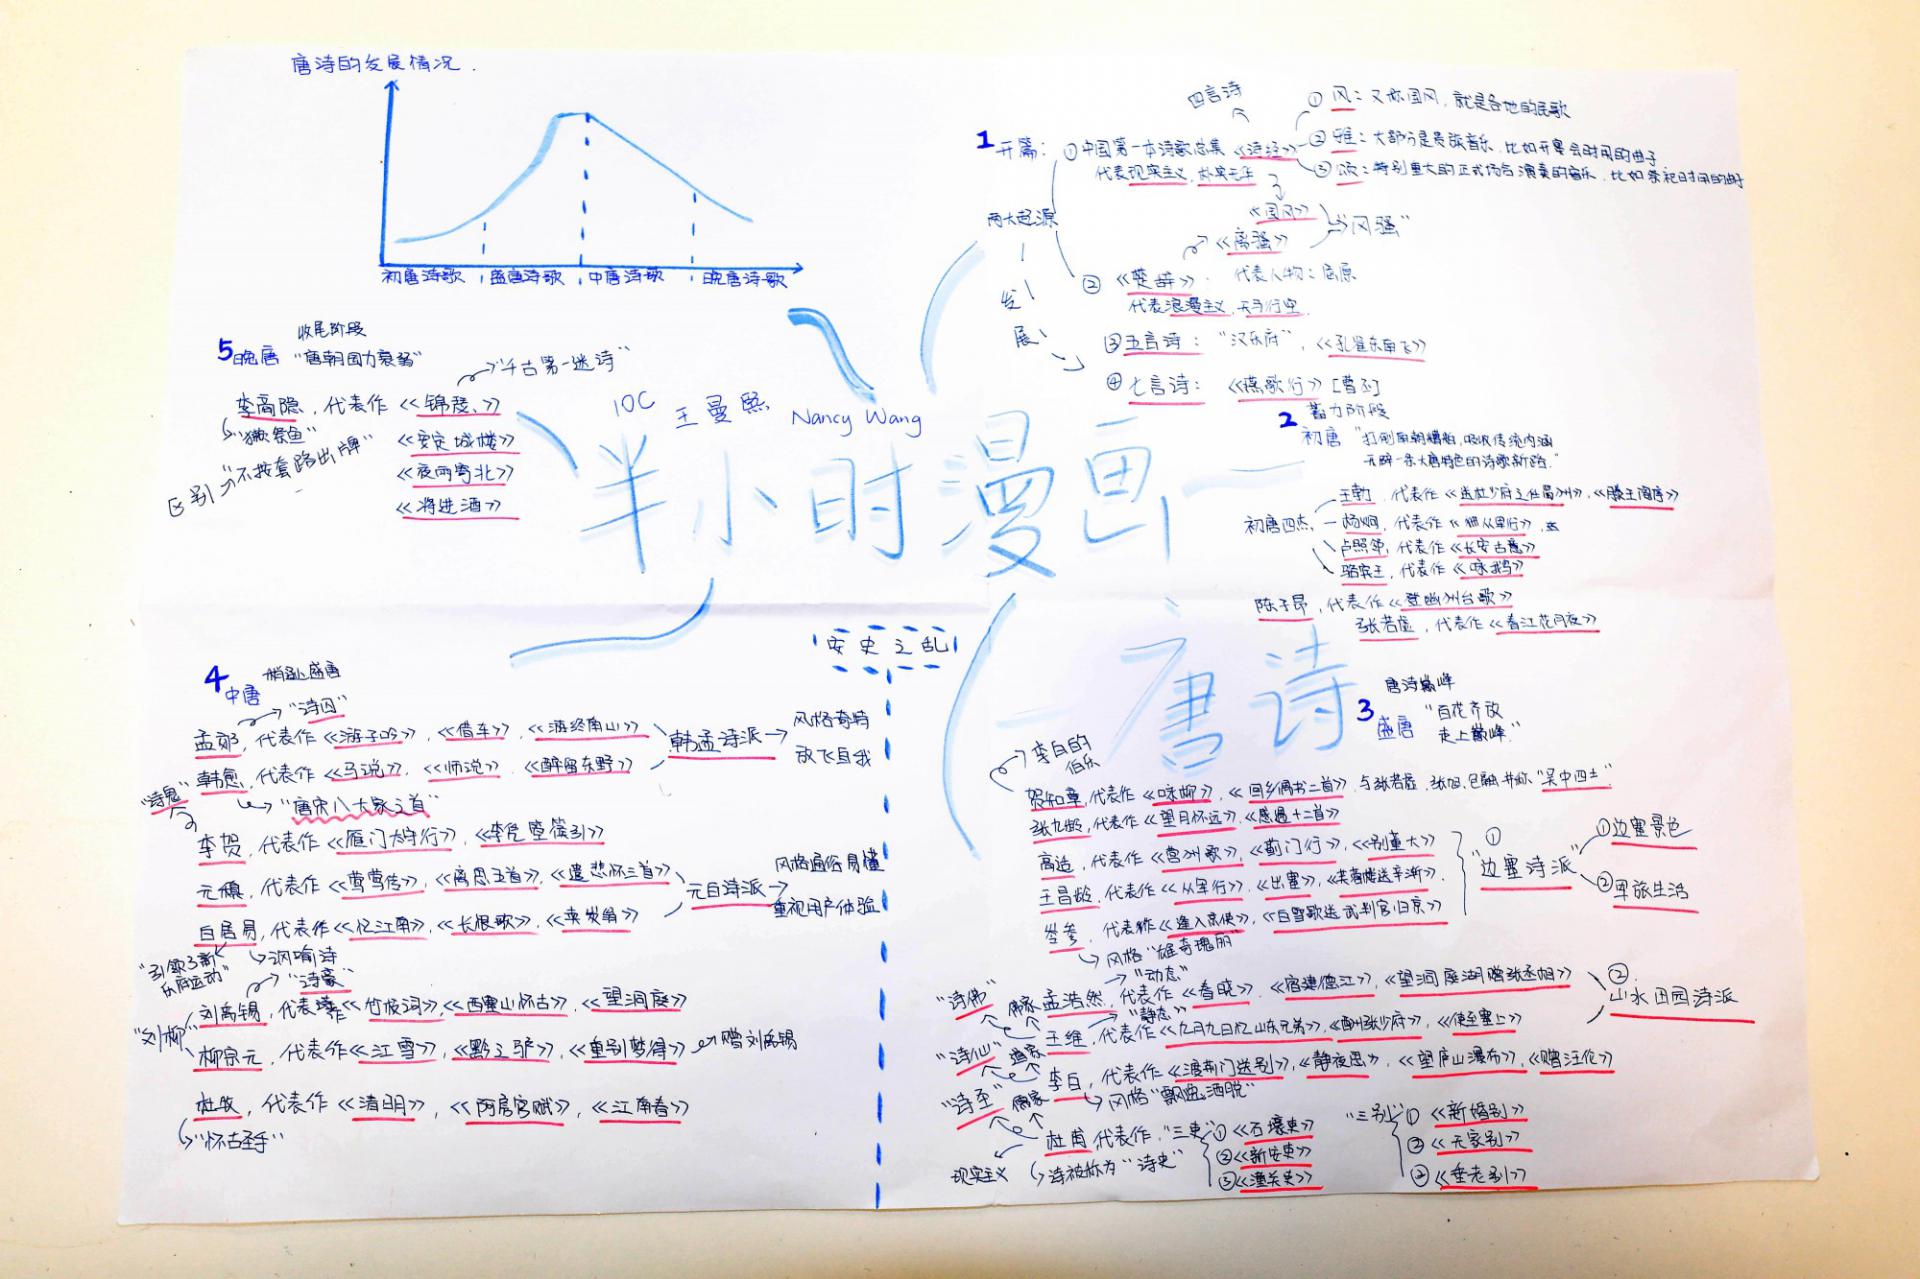 唐诗的发展情况.
初唐诗歌 盛唐诗歌 中唐诗歌 晚唐诗歌
10C 王曼熙 Nancy Wang
半小时漫画
唐诗
1 开篇:
两大起源
发展
四言诗
①中国第一本诗歌总集《诗经》
代表现实主义,朴实无华
①风:又称国风,就是各地的民歌
②雅:大部分是贵族音乐,比如开宴会时用的曲子
③颂:特别重大的正式场合演奏的音乐,比如祭祀时用的曲子
《国风》
《离骚》
"风骚"
②《楚辞》. 代表人物:屈原
代表浪漫主义,天马行空
③五言诗:"汉乐府",《孔雀东南飞》
④七言诗:《燕歌行》[曹丕]
2 初唐
蓄力阶段
"打倒南朝糟粕,吸收传统内涵
开辟一条大唐特色的诗歌新路."
初唐四杰
王勃,代表作《送杜少府之任蜀州》,《滕王阁序》
杨炯,代表作《从军行》
卢照邻,代表作《长安古意》
骆宾王,代表作《咏鹅》
陈子昂,代表作《登幽州台歌》
张若虚,代表作《春江花月夜》
3 盛唐
唐诗巅峰
"百花齐放
走上巅峰."
李白的
伯乐
贺知章,代表作《咏柳》,《回乡偶书二首》,与张若虚,张旭,包融并称"吴中四士"
张九龄,代表作《望月怀远》,《感遇十二首》
高适,代表作《营州歌》,《蓟门行》,《别董大》
王昌龄,代表作《从军行》,《出塞》,《芙蓉楼送辛渐》.
岑参,代表作《逢入京使》,《白雪歌送武判官归京》
风格"雄奇瑰丽"
①
"边塞诗派"
①边塞景色
②军旅生活
"动态"
孟浩然,代表作《春晓》,《宿建德江》,《望洞庭湖赠张丞相》
"静态"
"诗佛" 佛家
王维,代表作《九月九日忆山东兄弟》,《酬张少府》,《使至塞上》
②
山水田园诗派
"诗仙" 道家
李白,代表作《渡荆门送别》,《静夜思》,《望庐山瀑布》,《赠汪伦》
风格"飘逸洒脱"
"诗圣" 儒家
杜甫,代表作,"三吏" ①《石壕吏》
②《新安吏》
③《潼关吏》
"三别" ①《新婚别》
②《无家别》
②《垂老别》
现实主义
诗被称为"诗史"
安史之乱
4 中唐
稍逊盛唐
"诗囚"
孟郊,代表作《游子吟》,《借车》,《游终南山》
韩愈,代表作《马说》,《师说》,《醉留东野》
"唐宋八大家之首"
韩孟诗派
风格奇特
放飞自我
"诗鬼"
李贺,代表作《雁门太守行》,《李凭箜篌引》
元稹,代表作《莺莺传》,《离思五首》,《遣悲怀三首》
白居易,代表作《忆江南》,《长恨歌》,《卖炭翁》
元白诗派
风格通俗易懂
重视用户体验
"引领了新
乐府运动"
讽喻诗
"诗豪"
刘禹锡,代表作《竹枝词》,《西塞山怀古》,《望洞庭》
"刘柳"
柳宗元,代表作《江雪》,《黔之驴》,《重别梦得》 赠刘禹锡
杜牧,代表作《清明》,《阿房宫赋》,《江南春》
"怀古圣手"
5 晚唐
收尾阶段
"唐朝国力衰弱"
"千古第一迷诗"
李商隐,代表作《锦瑟、》
"獭祭鱼"
《安定城楼》
区别 "不按套路出牌"
《夜雨寄北》
《将进酒》